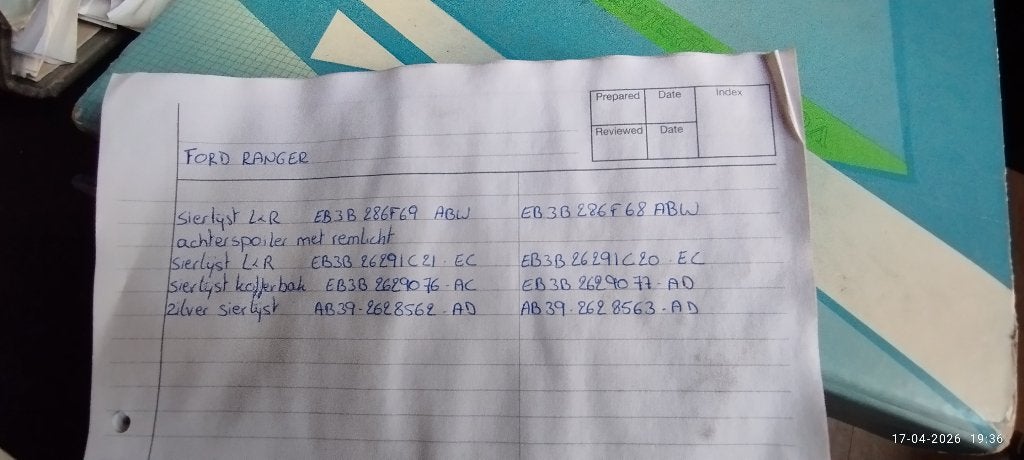 Prepared Date Index
Reviewed Date
FORD RANGER
sierlyst L&R EB3B 286F69 ABW EB3B 286F68 ABW
achterspoiler met remlicht
sierlyst L&R EB3B 26291C21-EC EB3B 26291C20-EC
sierlyst kofferbak EB3B 2629076-AC EB3B 2629077-AD
zilver sierlyst AB39-2628562-AD AB39-2628563-AD
17-04-2026 19:36